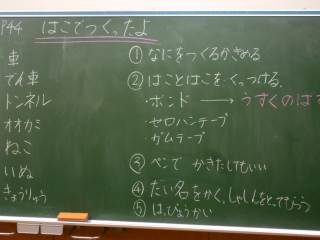 P44 はこでつくったよ
車
でん車
トンネル
オオカミ
ねこ
いぬ
きょうりゅう
①なにをつくるかきめる
②はことはこを、くっつける。
・ボンド → うすくのば
・セロハンテープ
・ガムテープ
③ペンで かきたしてもいい
④だい名をかく、しゃしんをとってもらう
⑤はっぴょうかい